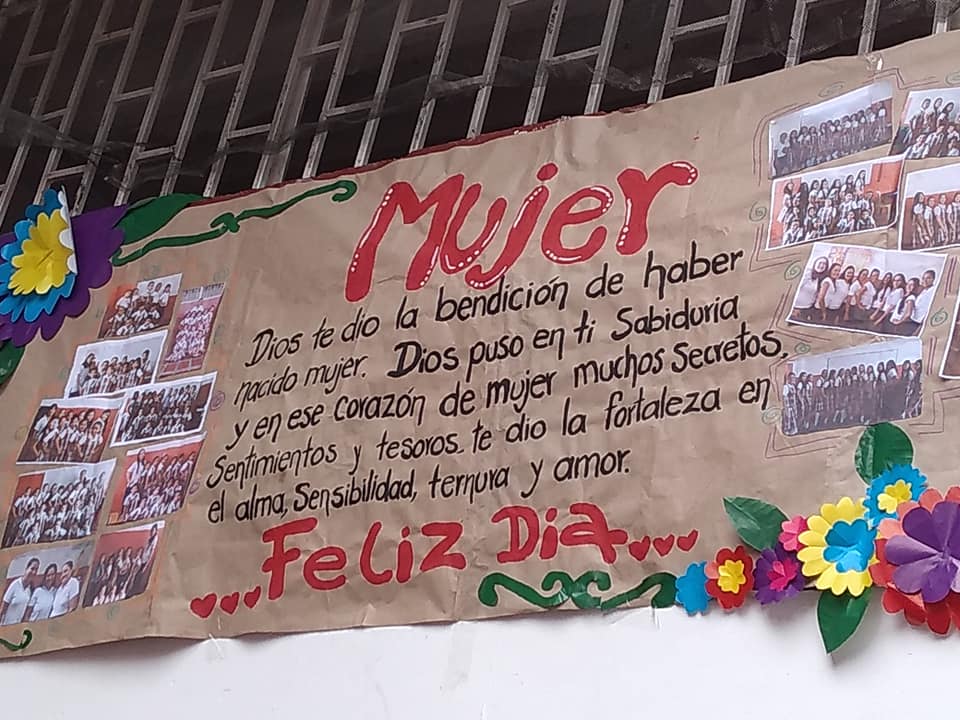 Mujer
Dios te dio la bendición de haber
nacido mujer. Dios puso en ti Sabiduria
y en ese corazón de mujer muchos secretos,
Sentimientos y tesoros. te dio la fortaleza en
el alma, Sensibilidad, ternura y amor.
...Feliz Dia...